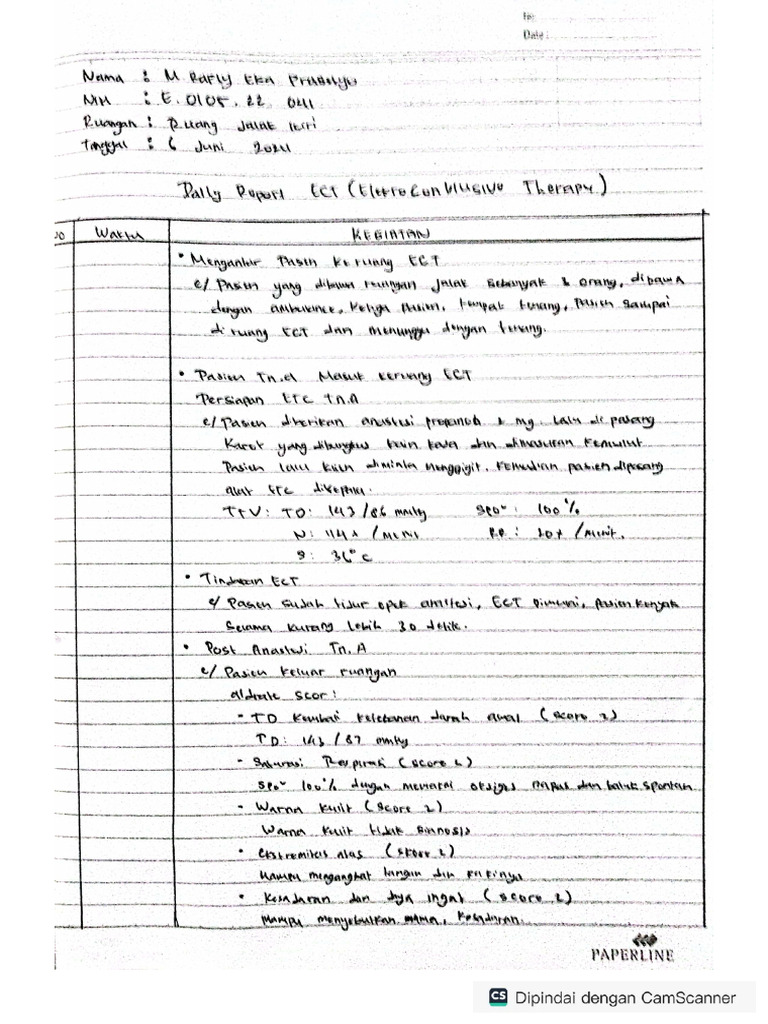 No:
Date:
Nama : M. Rafly Eka Prasetyo
NIM : E. 0105. 22. 041
Ruangan : Ruang Jalak
Tanggal : 6 Juni 2024
Daily Report ECT (Elektro Conblusive Therapy)
NO Waktu KEGIATAN
• Mengantar Pasien Ke ruang ECT
e/ Pasien yang dibawa ruangan Jalak Sebanyak orang, dibawa
dengan ambulance, Ketiga Pasien, tampak tenang, Pasien Sampai
di ruang ECT dan menunggu dengan tenang.
• Pasien Tn.A Masuk keruang ECT
Persiapan ETC Tn.A
e/ Pasien diberikan anastesi mg. Lalu di pasang
Karet yang dibungkus kain kasa dan dimasukan Kemulut
Pasien lalu diminta menggigit. Kemudian pasien dipasang
alat ETC dikepala.
TTV: TD: 143/86 mmHg SPO²: 100%
N: 114x/Menit RR: 20x/Menit.
S: 36°C
• Tindakan ECT
e/ Pasien sudah tidur anastesi, ECT Dimulai, Pasien Kenjak
Selama kurang lebih 30 detik.
• Post Anastesi Tn. A
e/ Pasien keluar ruangan
aldrete scor:
- TD Kembali Ketekanan darah awal (score 2)
TD: 143/87 mmHg
- Saturasi Respirasi (score 2)
SPO² 100% dengan memakai napas dan batuk spontan
- Warna Kulit (score 2)
Warna Kulit tidak sianosis
• Ekstremitas atas (skore 2)
Mampu mengangkat tangan dan kakinya
• Kesadaran dan daya ingat (score 2)
Mampu menyebutkan nama, Kesadaran.
PAPERLINE
CS Dipindai dengan CamScanner